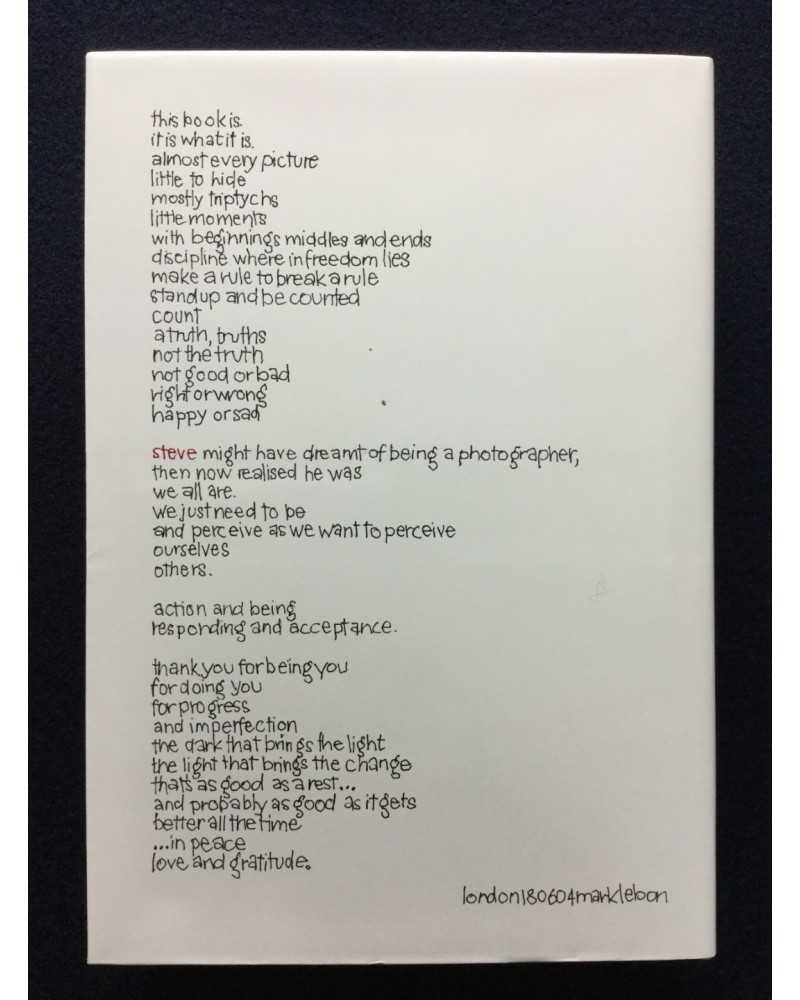 this book is.
it is what it is.
almost every picture
little to hide
mostly triptychs
little moments
with beginnings middles and ends
discipline where in freedom lies
make a rule to break a rule
stand up and be counted
count
a truth, truths
not the truth
not good or bad
right or wrong
happy or sad
steve might have dreamt of being a photographer,
then now realised he was
we all are.
we just need to be
and perceive as we want to perceive
ourselves
others.
action and being
responding and acceptance.
thank you for being you
for doing you
for progress
and imperfection
the dark that brings the light
the light that brings the change
thats as good as a rest...
and probably as good as it gets
better all the time
...in peace
love and gratitude.
london180604marklebon